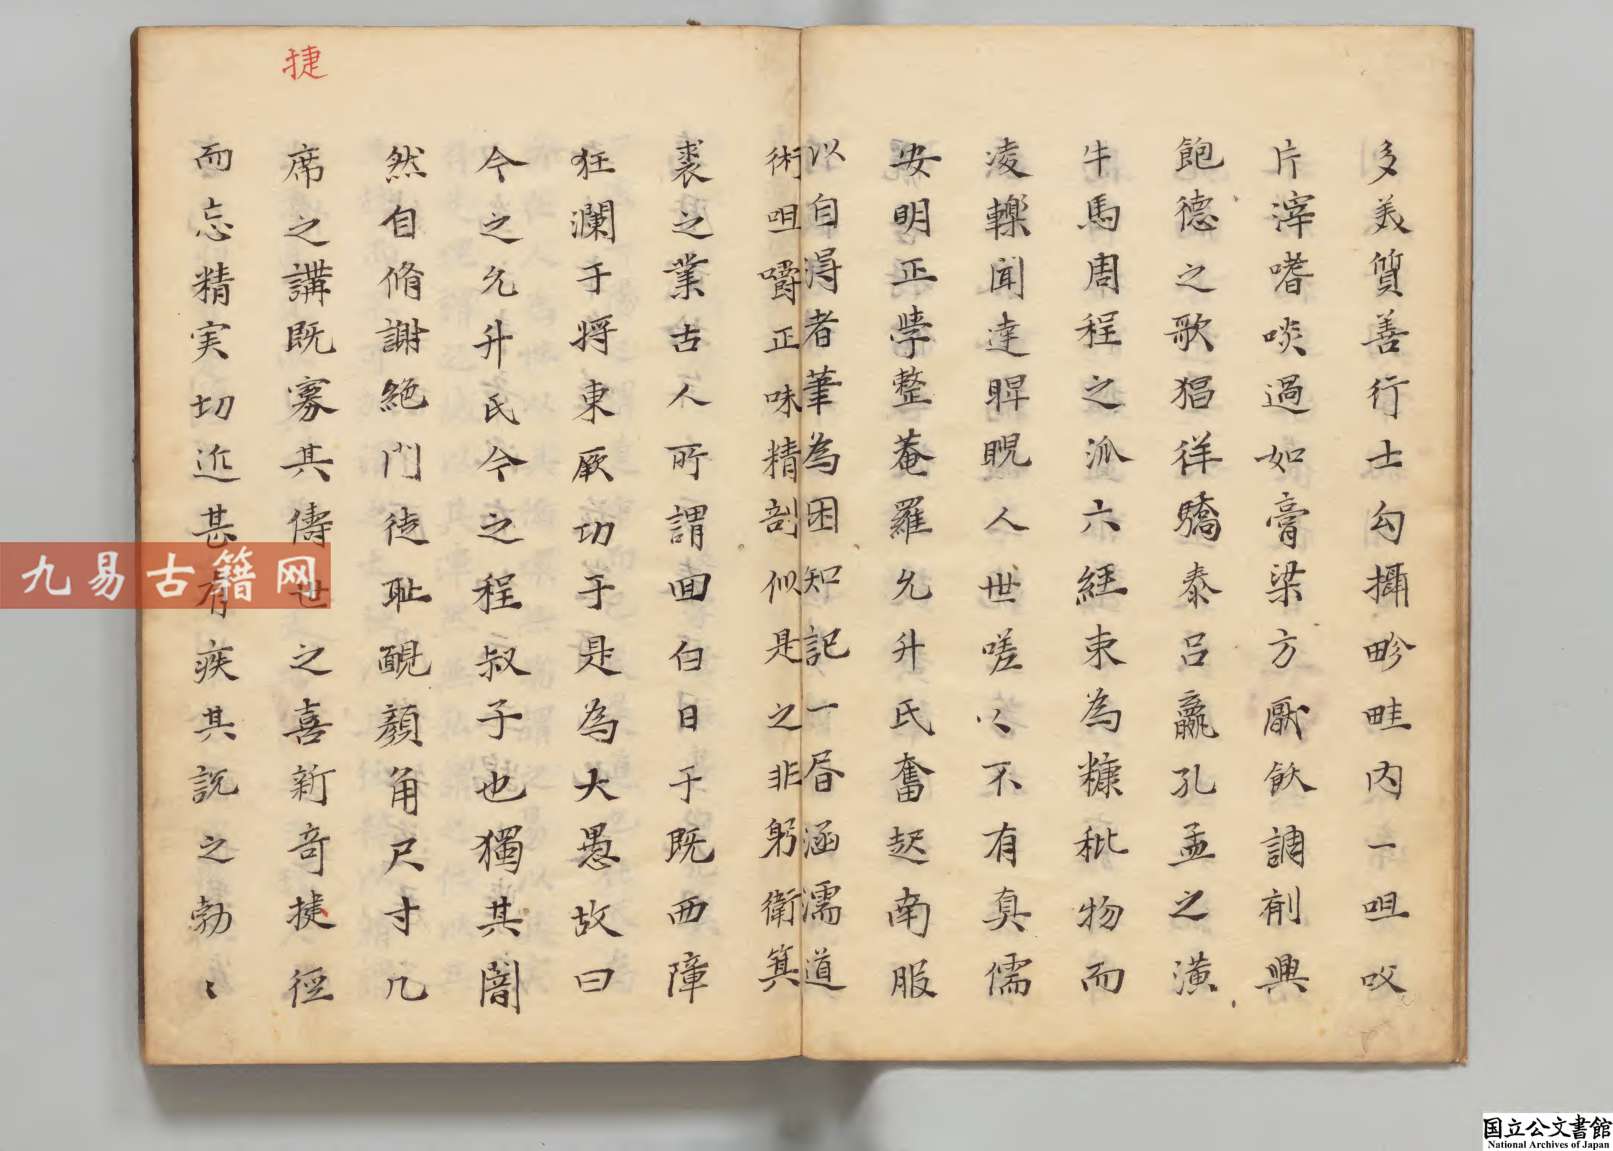 多美質善行士勾攝畛畦内一咀㕮
片滓嗜啖過如膏梁方厭飫調剤興
飽德之歌猖徉驕泰呂贏孔孟之潢
牛馬周程之派六經束為糠秕物而
凌轢聞達睥睨人世嗟々不有真儒
安明正学整菴羅允升氏奮起南服
以自得者筆為困知記一眉涵濡道
術咀嚼正味精剖似是之非躬衛箕
裘之業古人所謂回白日于既西障
狂瀾于将東厥功于是為大愚故曰
今之允升氏今之程叔子也獨其闇
然自脩謝絶門徒耻靦顏角尺寸几
席之講既寡其儔世之喜新奇捷徑
而忘精実切近甚有疾其説之勃〻
捷
九易古籍网
国立公文書館
National Archives of Japan